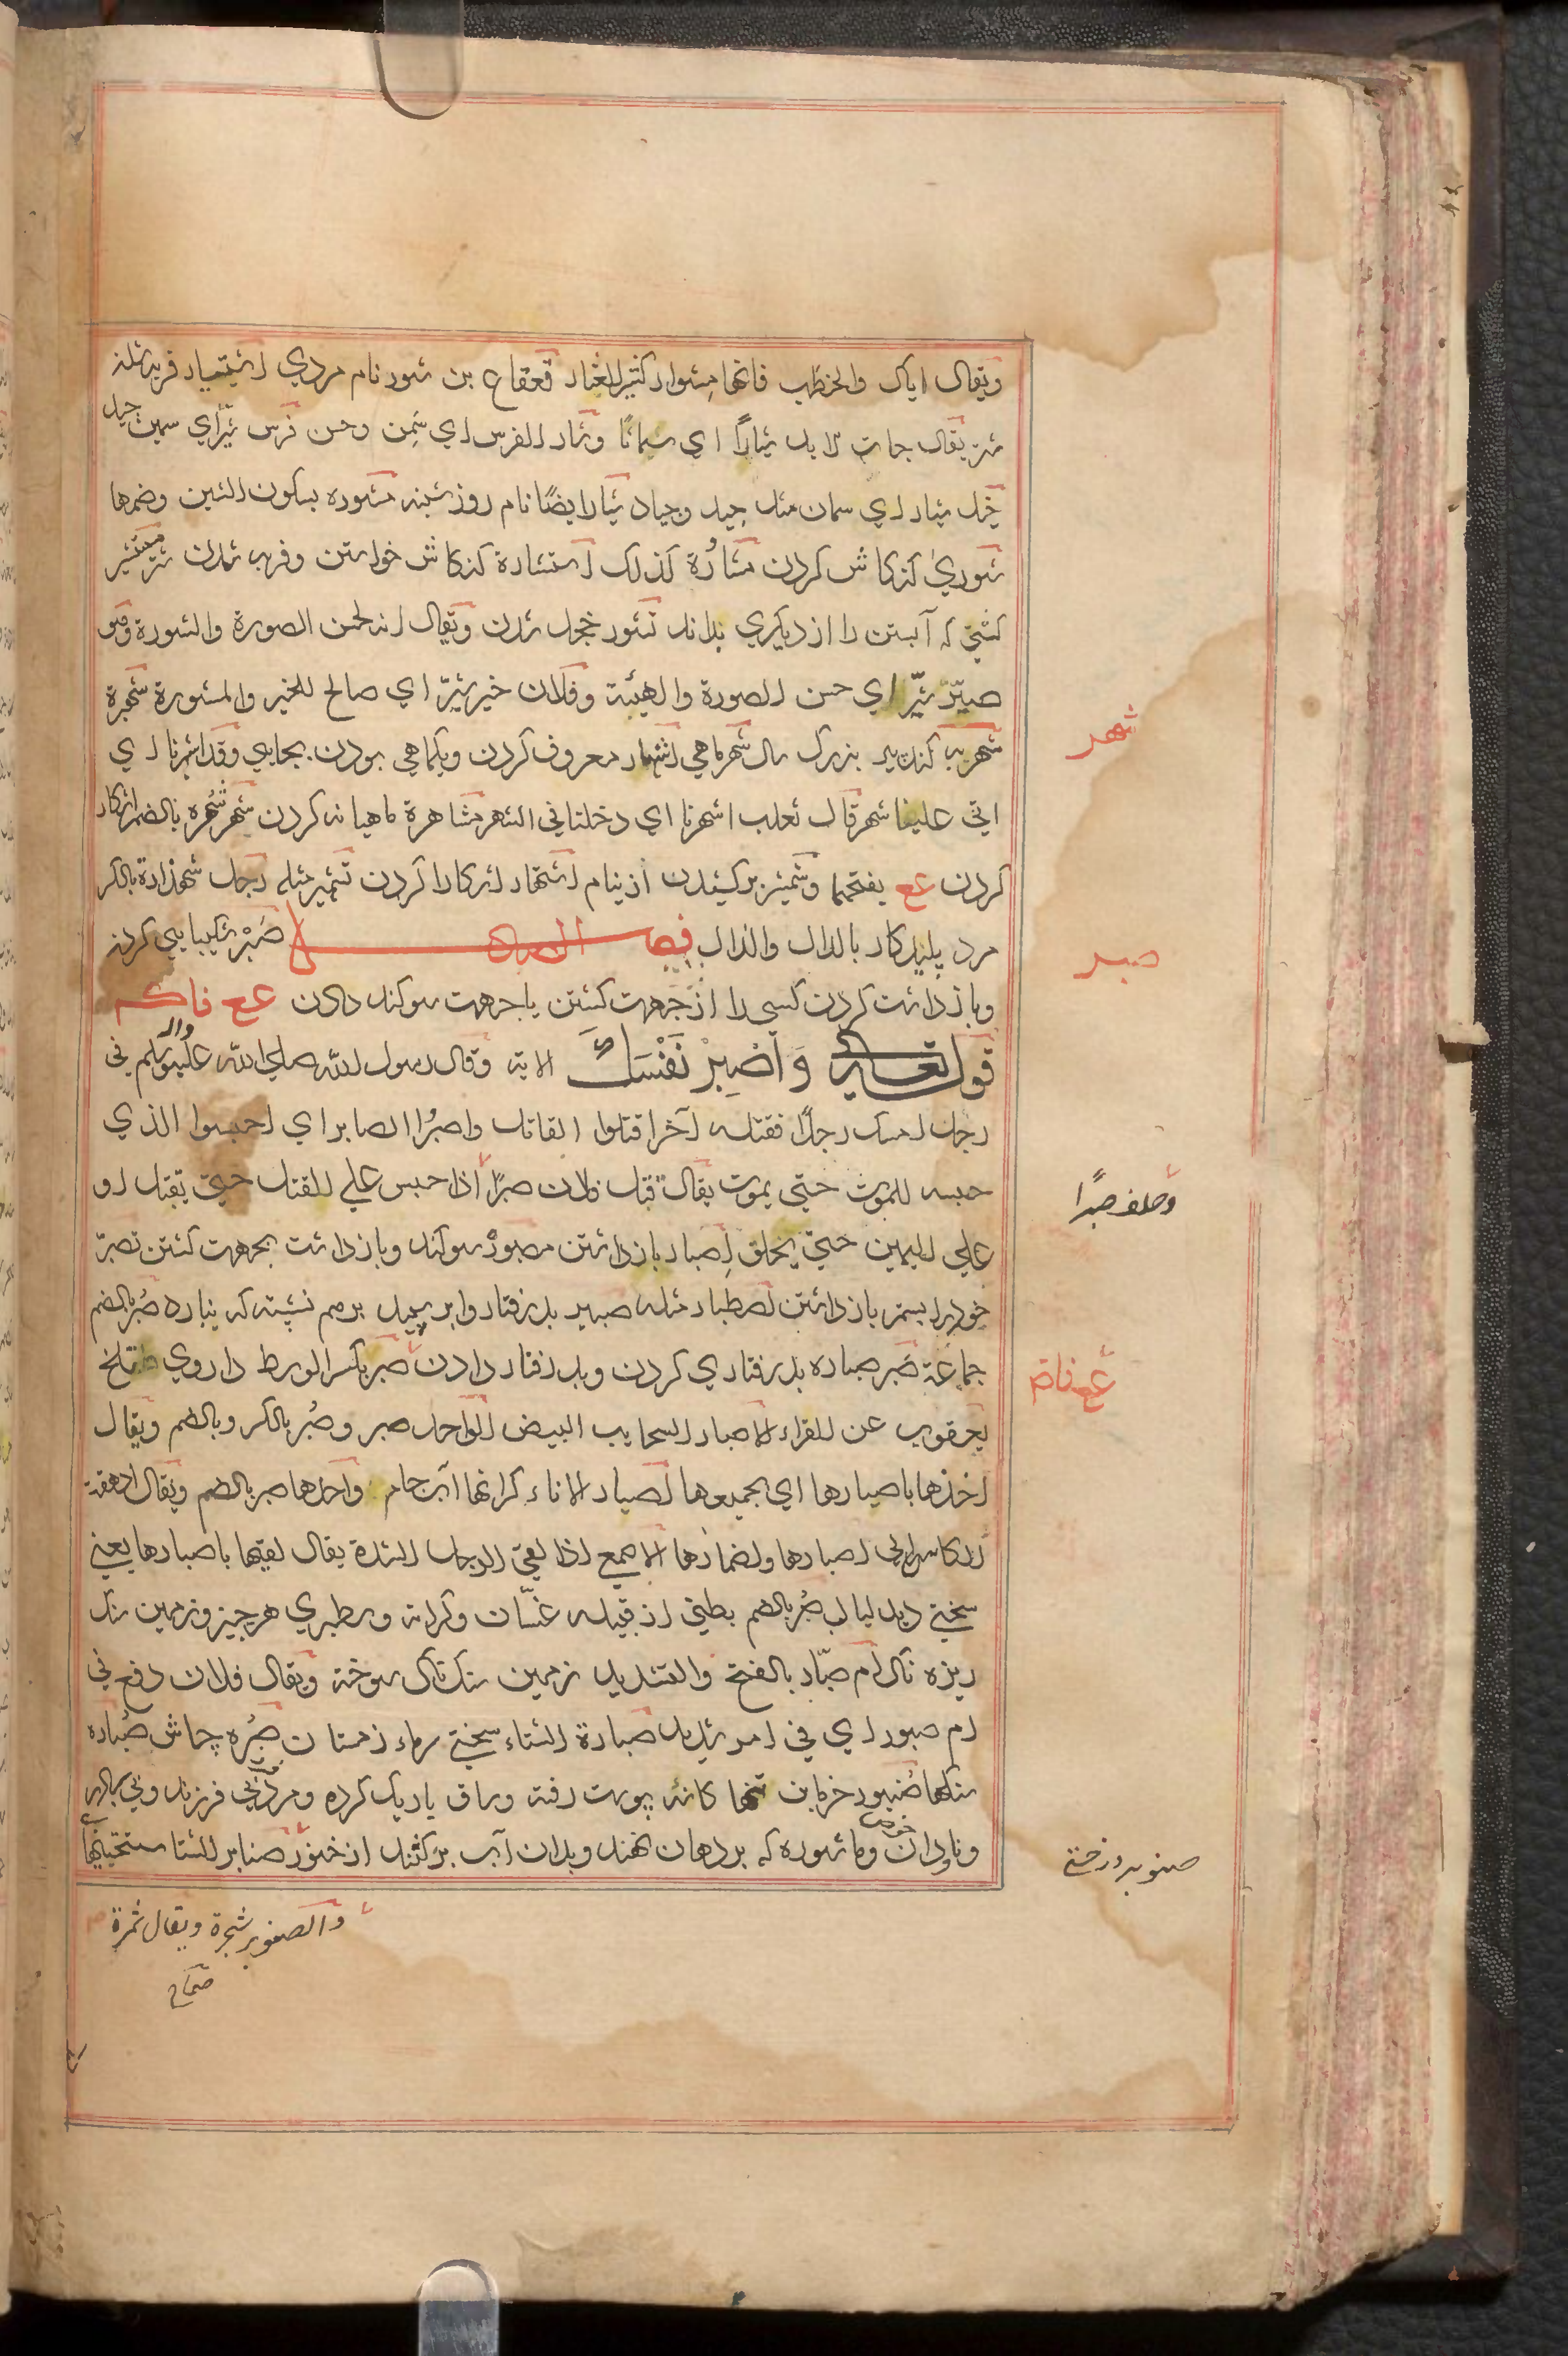 ويقال اياك والخطب فانها مشوار كثير العثار قعقاع بن شور نام مردي اشتيار فربه شدن
يقال جات الابل شيارا اي سمانا وشار الفرس اي سمن وحسن فرس شير اي سمين
خيل شيار اي سمان مثل جيد وجياد شيار ايضا نام روز شنبه مشوره بسكون الشين وضمها
شوري كنكاش كردن مشاورة كذلك استشارة كنكاش خواستن وفربه شدن شتر مستشير
كشني كه آبستن را از ديكري بداند تشور خجل شدن ويقال انه لحسن الصورة والشورة وهو
صير شير اي حسن الصورة والهيئة وفلان خير شير اي صالح للخير والمشورة
شهربه كنده پير بزرك سال شهر ماهي اشتهار معروف كردن ويكماهي بودن بجايي وقد اشهرنا اي
اتي علينا شهر قال ثعلب اشهرنا اي دخلنا في الشهر مشاهرة ماهيانه كردن شهر شهره بالضم اشكار
كردن عع بفتحهما وشمشير بركشيدن از نيام اشتهار اشكارا كردن تشهير مثله رجل شهذارة بالكسر
مرد پليد كار بالدال والذال فصل الصاد صبر شكيبايي كردن
وباز داشت كردن كسي را از جهت كشتن يا جهت سوكند دادن عع فاكم
قوله تعالي واصبر نفسك الاية وقال رسول الله صلي الله عليه واله وسلم في
رجل امسك رجلا فقتله آخر اقتلوا القاتل واصبروا الصابر اي احبسوا الذي
حبسه للموت حتي يموت يقال قتل فلان صبرا اذا حبس علي القتل حتي يقتل او
علي اليمين حتي يحلف اصبار باز داشتن مصبور سوكند وباز داشت بجهت كشتن تصبر
خود را بستم باز داشتن اصطبار مثله صبير بدرفتار وابر سپيد برهم نشسته كه نبارد صبر بالضم
جماعة صبر صباره بدرفتاري كردن وبدرفتار دادن صبر بكسر الوسط داروي تلخ
يعقوب عن الفراء الاصبار السحايب البيض الواحد صبر وصبر بالكسر وبالضم ويقال
اخذها باصبارها اي بجميعها اصبار الاناء كرانها آب جام واحدها صبر بالضم ويقال ادهقت
الكاس الي اصبارها واضمارها الاصمعي اذا لقي الرجل الشدة يقال لقيها باصبارها يعني
سختي ديد صبر بالضم بطني از قبيله غسان وكرانه وسطبري هر چيز وزمين سنك
ريزه ناك ام صبار بالفتح والتشديد زمين سنك ناك سوخته ويقال فلان دفع في
ام صبور اي في امر شديد صبارة الشتاء سختي سرماء زمستان صبره چاش صباره
سنكها صنبور خرمابن تنها كانه پوست رفته وساق باريك كرده ومرد بي فرزند وبي برادر
وناودان حوض وماشوره كه بر دهان نهند وبدان آب بركشند از خنور صنابر الشتا
شهر
صبر
وحلف صبرا
عع فاض
صنوبر درختي
والصنوبر شجرة ويقال ثمرة
صحاح